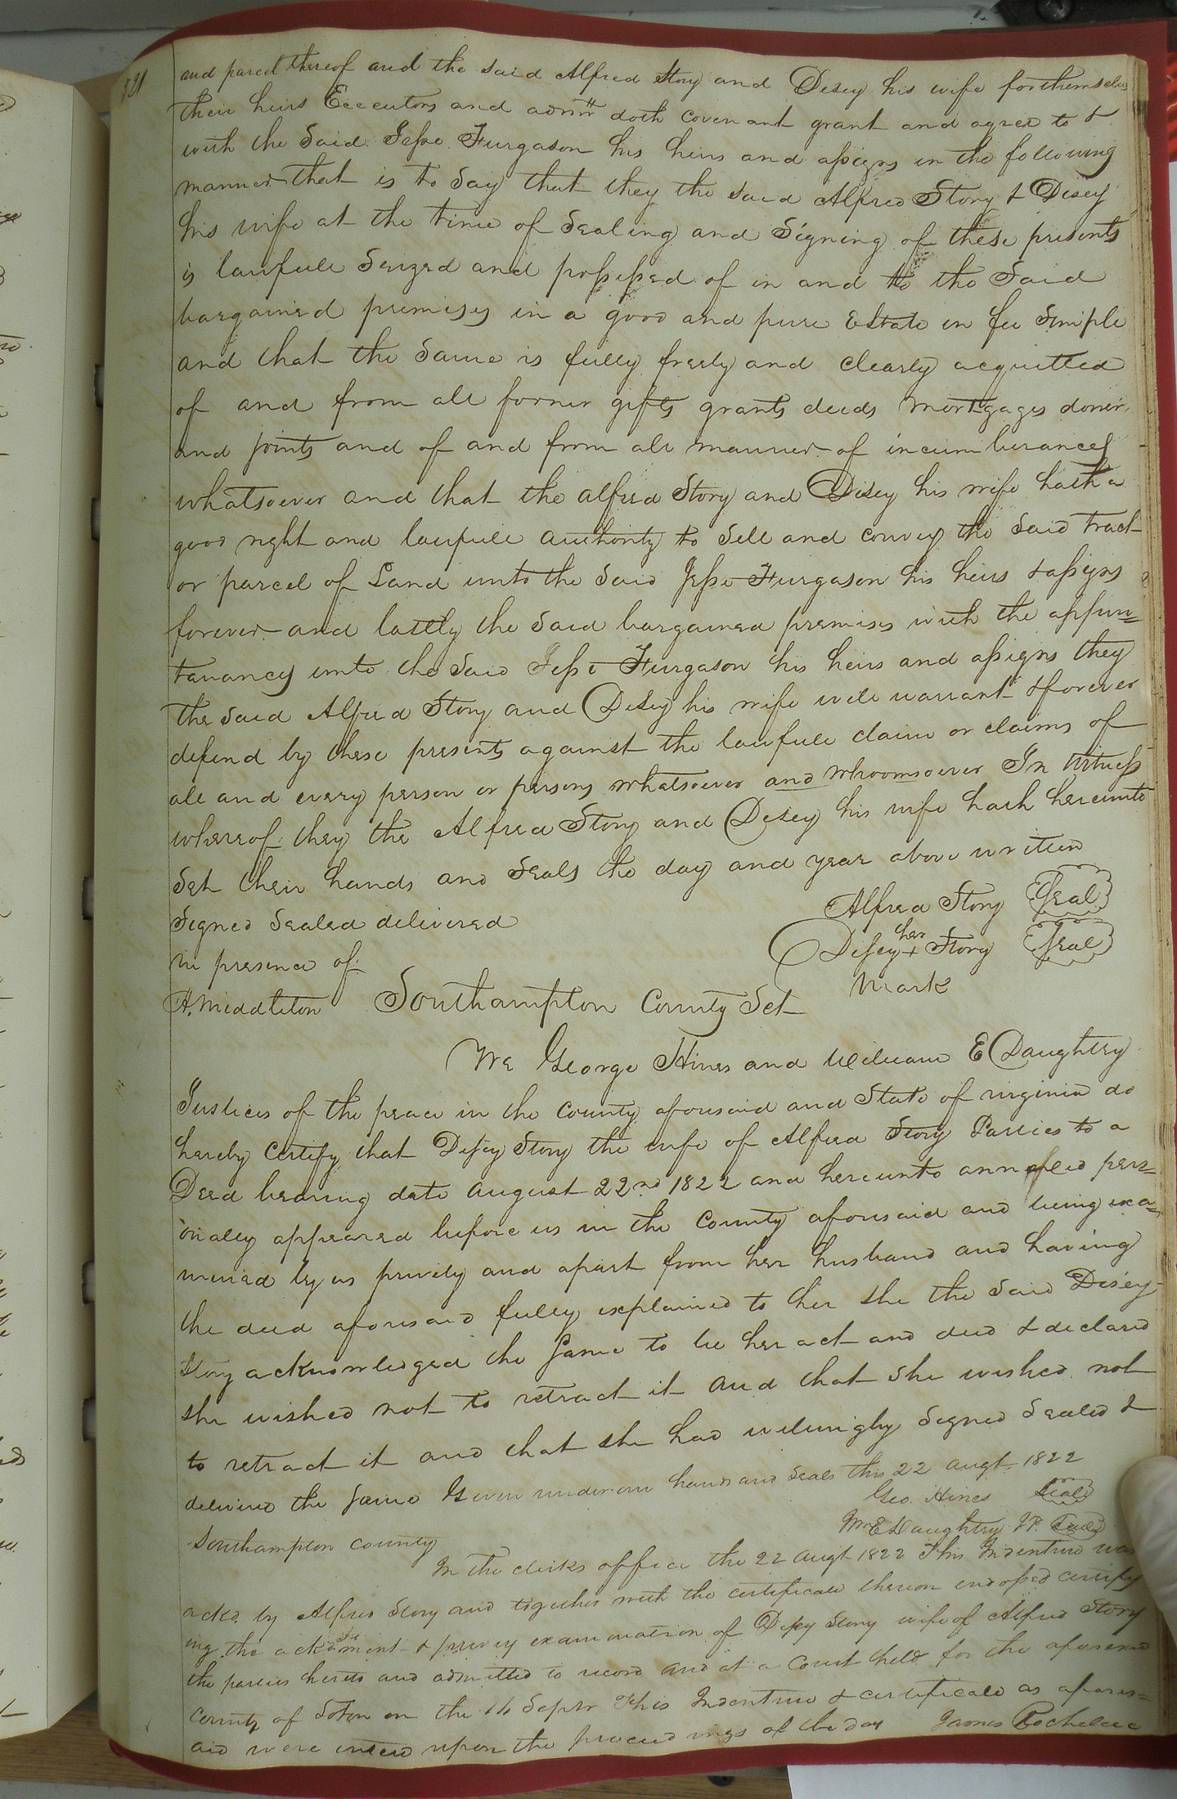 and parcel thereof and the said Alfred Story and Disey his wife for themselves
their heirs Executors and admrs doth covenant grant and agree to &
with the Said Jesse Furgason his heirs and assigns in the following
manner that is to Say that they the said Alfred Story & Disey
his wife at the time of Sealing and Signing of these presents
is lawfull Seized and possessed of in and to the Said
bargained premises in a good and pure Estate in fee Simple
and that the Same is fully freely and clearly acquitted
of and from all former gifts grants deeds mortgages
and joints and of and from all manner of incumberances
whatsoever and that the Alfred Story and Disey his wife hath a
good right and lawfull authority to Sell and convey the Said tract
or parcel of Land unto the Said Jesse Furgason his heirs & assigns
forever and lastly the Said bargained premises with the appur=
tanancy unto the Said Jesse Furgason his heirs and assigns they
the Said Alfred Story and Disey his wife will warrant & forever
defend by these presents against the lawfull claim or claims of
all and every person or persons whatsoever and whoomsoever In witness
whereof they the Alfred Story and Disey his wife hath hereunto
Set their hands and Seals the day and year above written
Signed Sealed delivered Alfred Story Seal
in presence of Disey her + Story Seal
mark
A. Middleton Southampton County Sct
We George Hines and William E Daughtry
Justices of the peace in the County aforesaid and State of virginia do
hereby Certify that Disey Story the wife of Alfred Story Parties to a
Deed bearing date August 22nd 1822 and hereunto annexed pers=
onally appeared before us in the County aforesaid and being exa=
mined by us privily and apart from her husband and having
the deed aforesaid fully explained to her She the Said Disey
Story acknowledged the Same to be her act and deed & declared
She wished not to retract it and that She wished not
to retract it and that She had willingly Signed Sealed &
delivered the Same Given under our hands and Seals this 22 augt 1822
Geo. Hines Seal
Wm E Daughtry JP. Seal
Southampton County
In the clerks office the 22 augt 1822 This Indenture was
ackd. by Alfred Story and together with the certificate thereon endorsed certify
ing the acknowledgment & privy examination of Disey Story wife of Alfred Story
the parties hereto and admitted to record and at a Court held for the aforesaid
County of Soton on the 16 Septr This Indenture & certificate as afores=
aid were entered upon the proceedings of the day James Rochelle